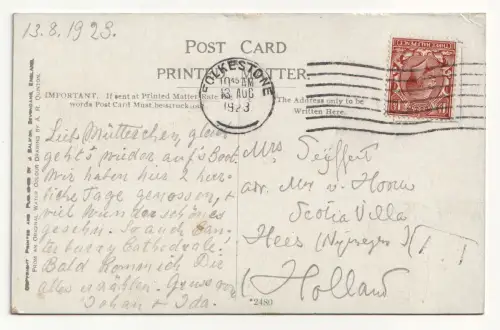 13.8.1923.
POST CARD
PRINTED MATTER.
IMPORTANT. If sent at Printed Matter Rate
words Post Card Must be struck out
The Address only to be
Written Here.
COPYRIGHT PRINTED AND PUBLISHED BY J. SALMON, SEVENOAKS, ENGLAND.
FROM AN ORIGINAL WATER COLOUR DRAWING BY A. R. QUINTON.
FOLKESTONE
10 45 AM
13 AUG
1923
THREE HALFPENCE
Lieb Mütterchen, gleich
geht's wieder auf's Boot.
Wir haben hier 2 herr-
liche Tage genossen, &
viel wunderschönes
gesehn. So auch Can-
terbury Cathedrale!
Bald komm ich Dir
alles erzählen. Gruss von
Johan & Ida.
Mrs Seyffert
adr. Mr v. Hoorn
Scotia Villa
Hees (Nijmegen)
Holland
*2480